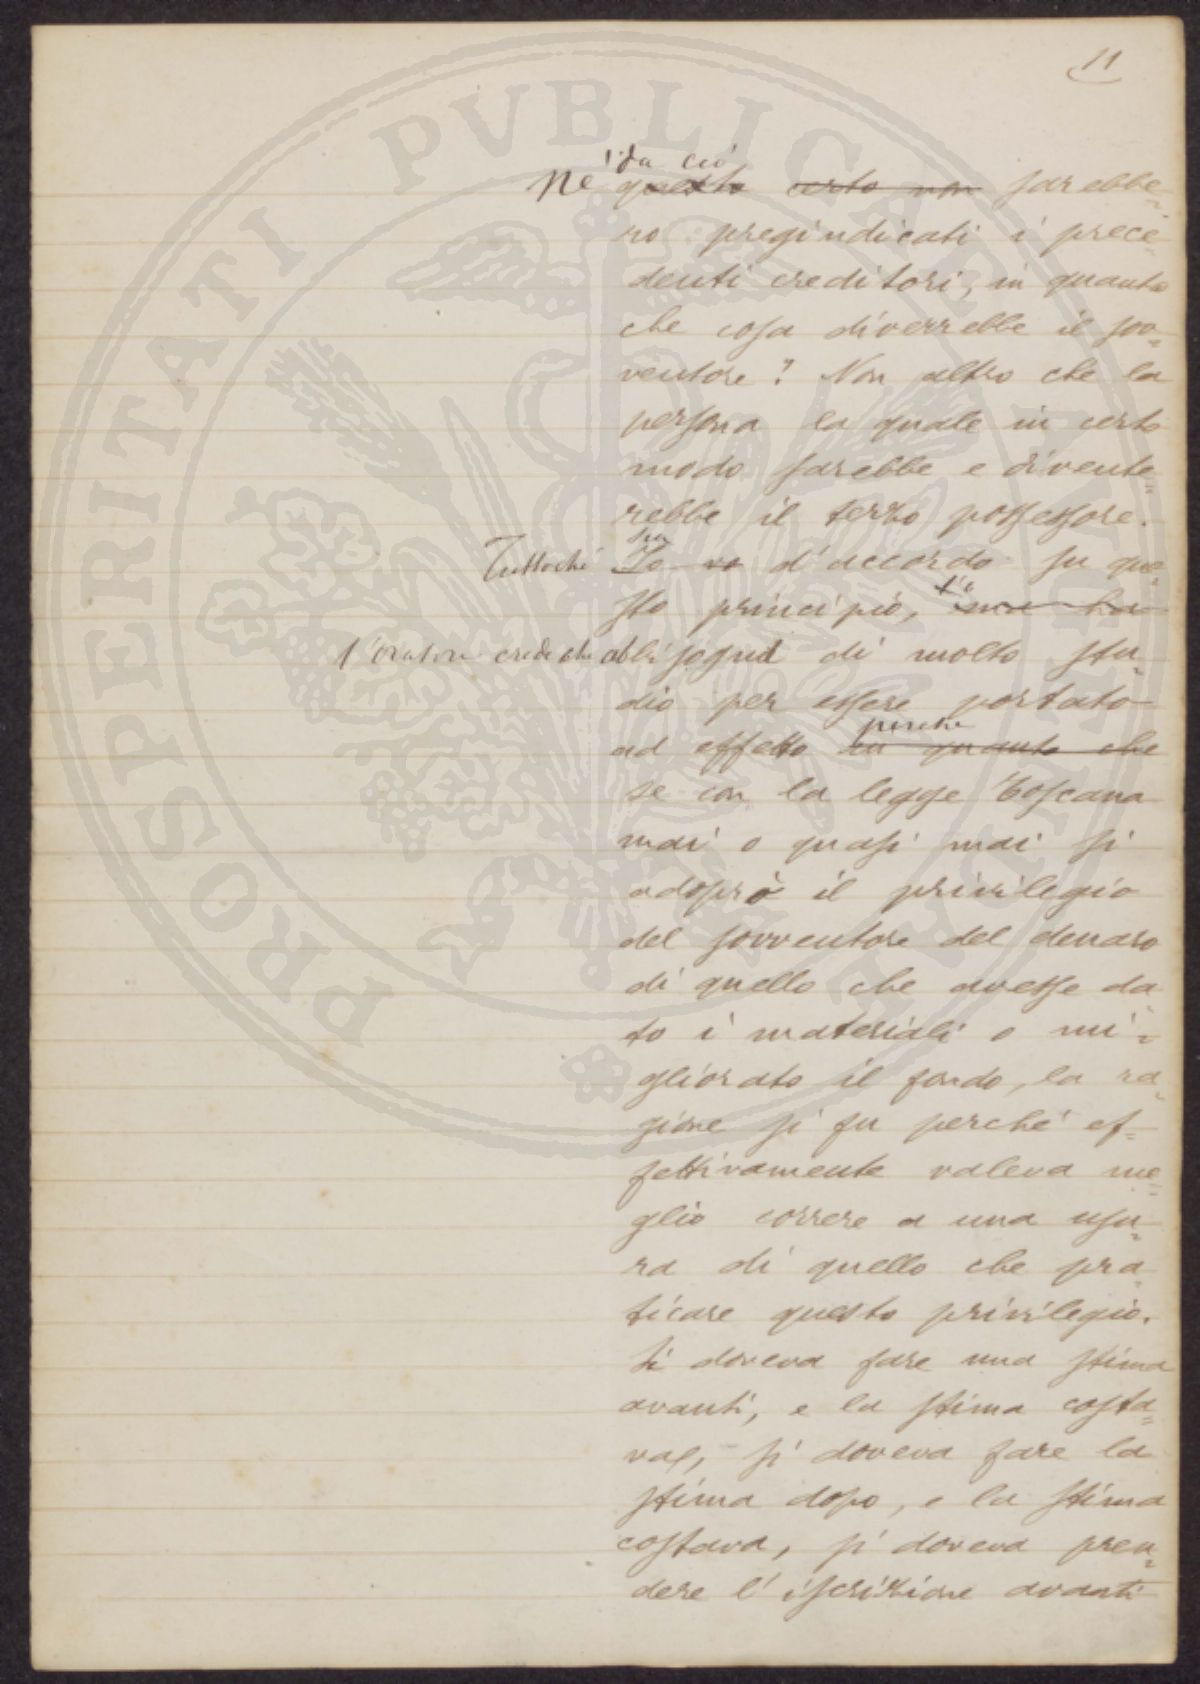 11
Nè da ciò questo certo non sarebbe=
ro pregiudicati i prece=
denti creditori, in quanto
che cosa diverrebbe il sov=
ventore? Non altro che la
persona la quale in certo
modo sarebbe e divente=
rebbe il terzo possessore.
Tuttochè sia Io vo d'accordo su que=
sto principio, ma ha
l'oratore crede che abbisogni di molto stu=
dio per essere portato
ad effetto perchè in quanto che
se con la legge Toscana
mai o quasi mai si
adoprò il privilegio
del sovventore del denaro
di quello che avesse da=
to i materiali o mi=
gliorato il fondo, la ra=
gione si fu perchè ef=
fettivamente valeva me=
glio correre a una usu=
ra di quello che pra=
ticare questo privilegio.
Si doveva fare una stima
avanti, e la stima costa=
va, si doveva fare la
stima dopo, e la stima
costava, si doveva pren=
dere l'iscrizione avanti
PROSPERITATI PUBLICAE AUGENDAE